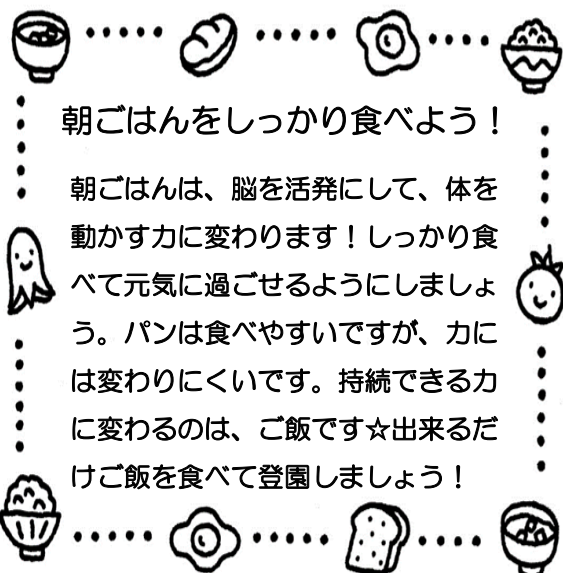 朝ごはんをしっかり食べよう！
朝ごはんは、脳を活発にして、体を
動かす力に変わります！しっかり食
べて元気に過ごせるようにしましょ
う。パンは食べやすいですが、力に
は変わりにくいです。持続できる力
に変わるのは、ご飯です☆出来るだ
けご飯を食べて登園しましょう！